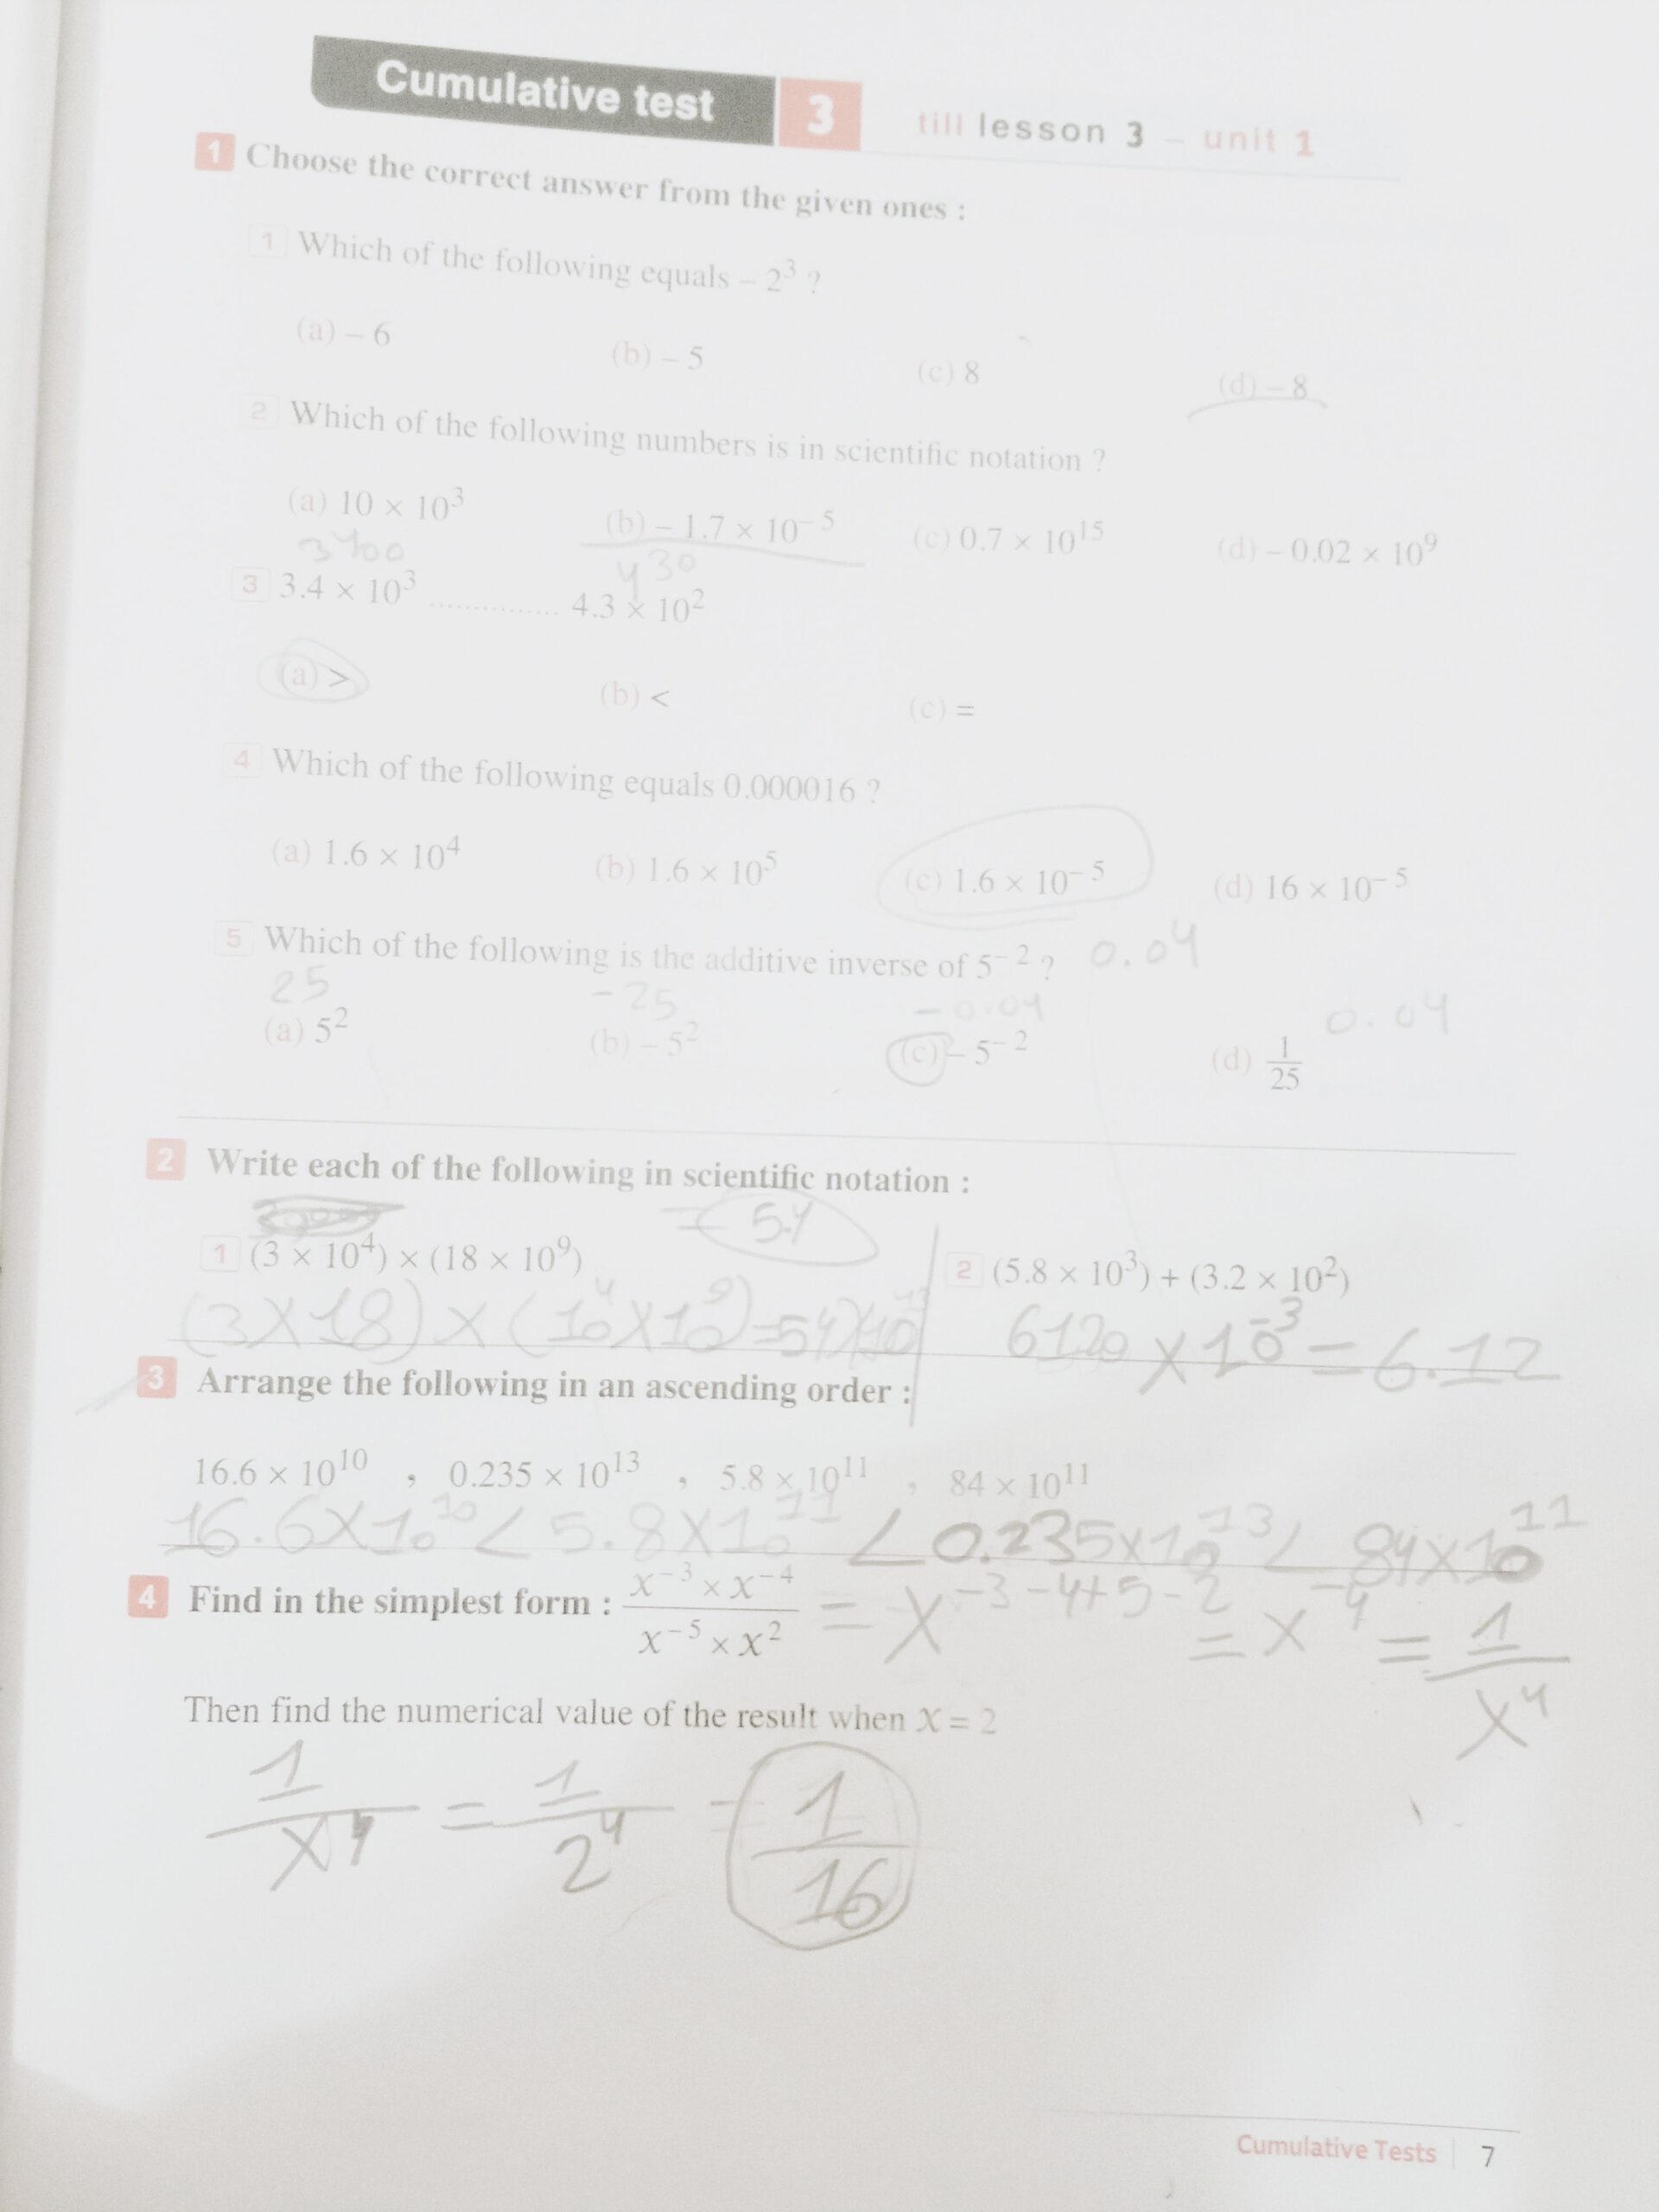 Cumulative test 3 till lesson 3 – unit 1
1 Choose the correct answer from the given ones :
1 Which of the following equals – 2³ ?
(a) – 6 (b) – 5 (c) 8 (d) – 8
2 Which of the following numbers is in scientific notation ?
(a) 10 × 10³ (b) – 1.7 × 10⁻⁵ (c) 0.7 × 10¹⁵ (d) – 0.02 × 10⁹
3400 430
3 3.4 × 10³ .............. 4.3 × 10²
(a) > (b) < (c) =
4 Which of the following equals 0.000016 ?
(a) 1.6 × 10⁴ (b) 1.6 × 10⁵ (c) 1.6 × 10⁻⁵ (d) 16 × 10⁻⁵
5 Which of the following is the additive inverse of 5⁻² ? 0.04
25 -25 -0.04 0.04
(a) 5² (b) – 5² (c) – 5⁻² (d) 1/25
2 Write each of the following in scientific notation :
= 5.4
1 (3 × 10⁴) × (18 × 10⁹) 2 (5.8 × 10³) + (3.2 × 10²)
(3X18) X (10⁴X10⁹)=54X10¹³ 6120 X 10⁻³ = 6.12
3 Arrange the following in an ascending order :
16.6 × 10¹⁰ , 0.235 × 10¹³ , 5.8 × 10¹¹ , 84 × 10¹¹
16.6X10¹⁰ < 5.8X10¹¹ < 0.235X10¹³ < 84X10¹¹
4 Find in the simplest form : x⁻³ × x⁻⁴ / x⁻⁵ × x² = X⁻³⁻⁴⁺⁵⁻² = X⁻⁴ = 1/X⁴
Then find the numerical value of the result when X = 2
1/X⁴ = 1/2⁴ = 1/16
Cumulative Tests 7